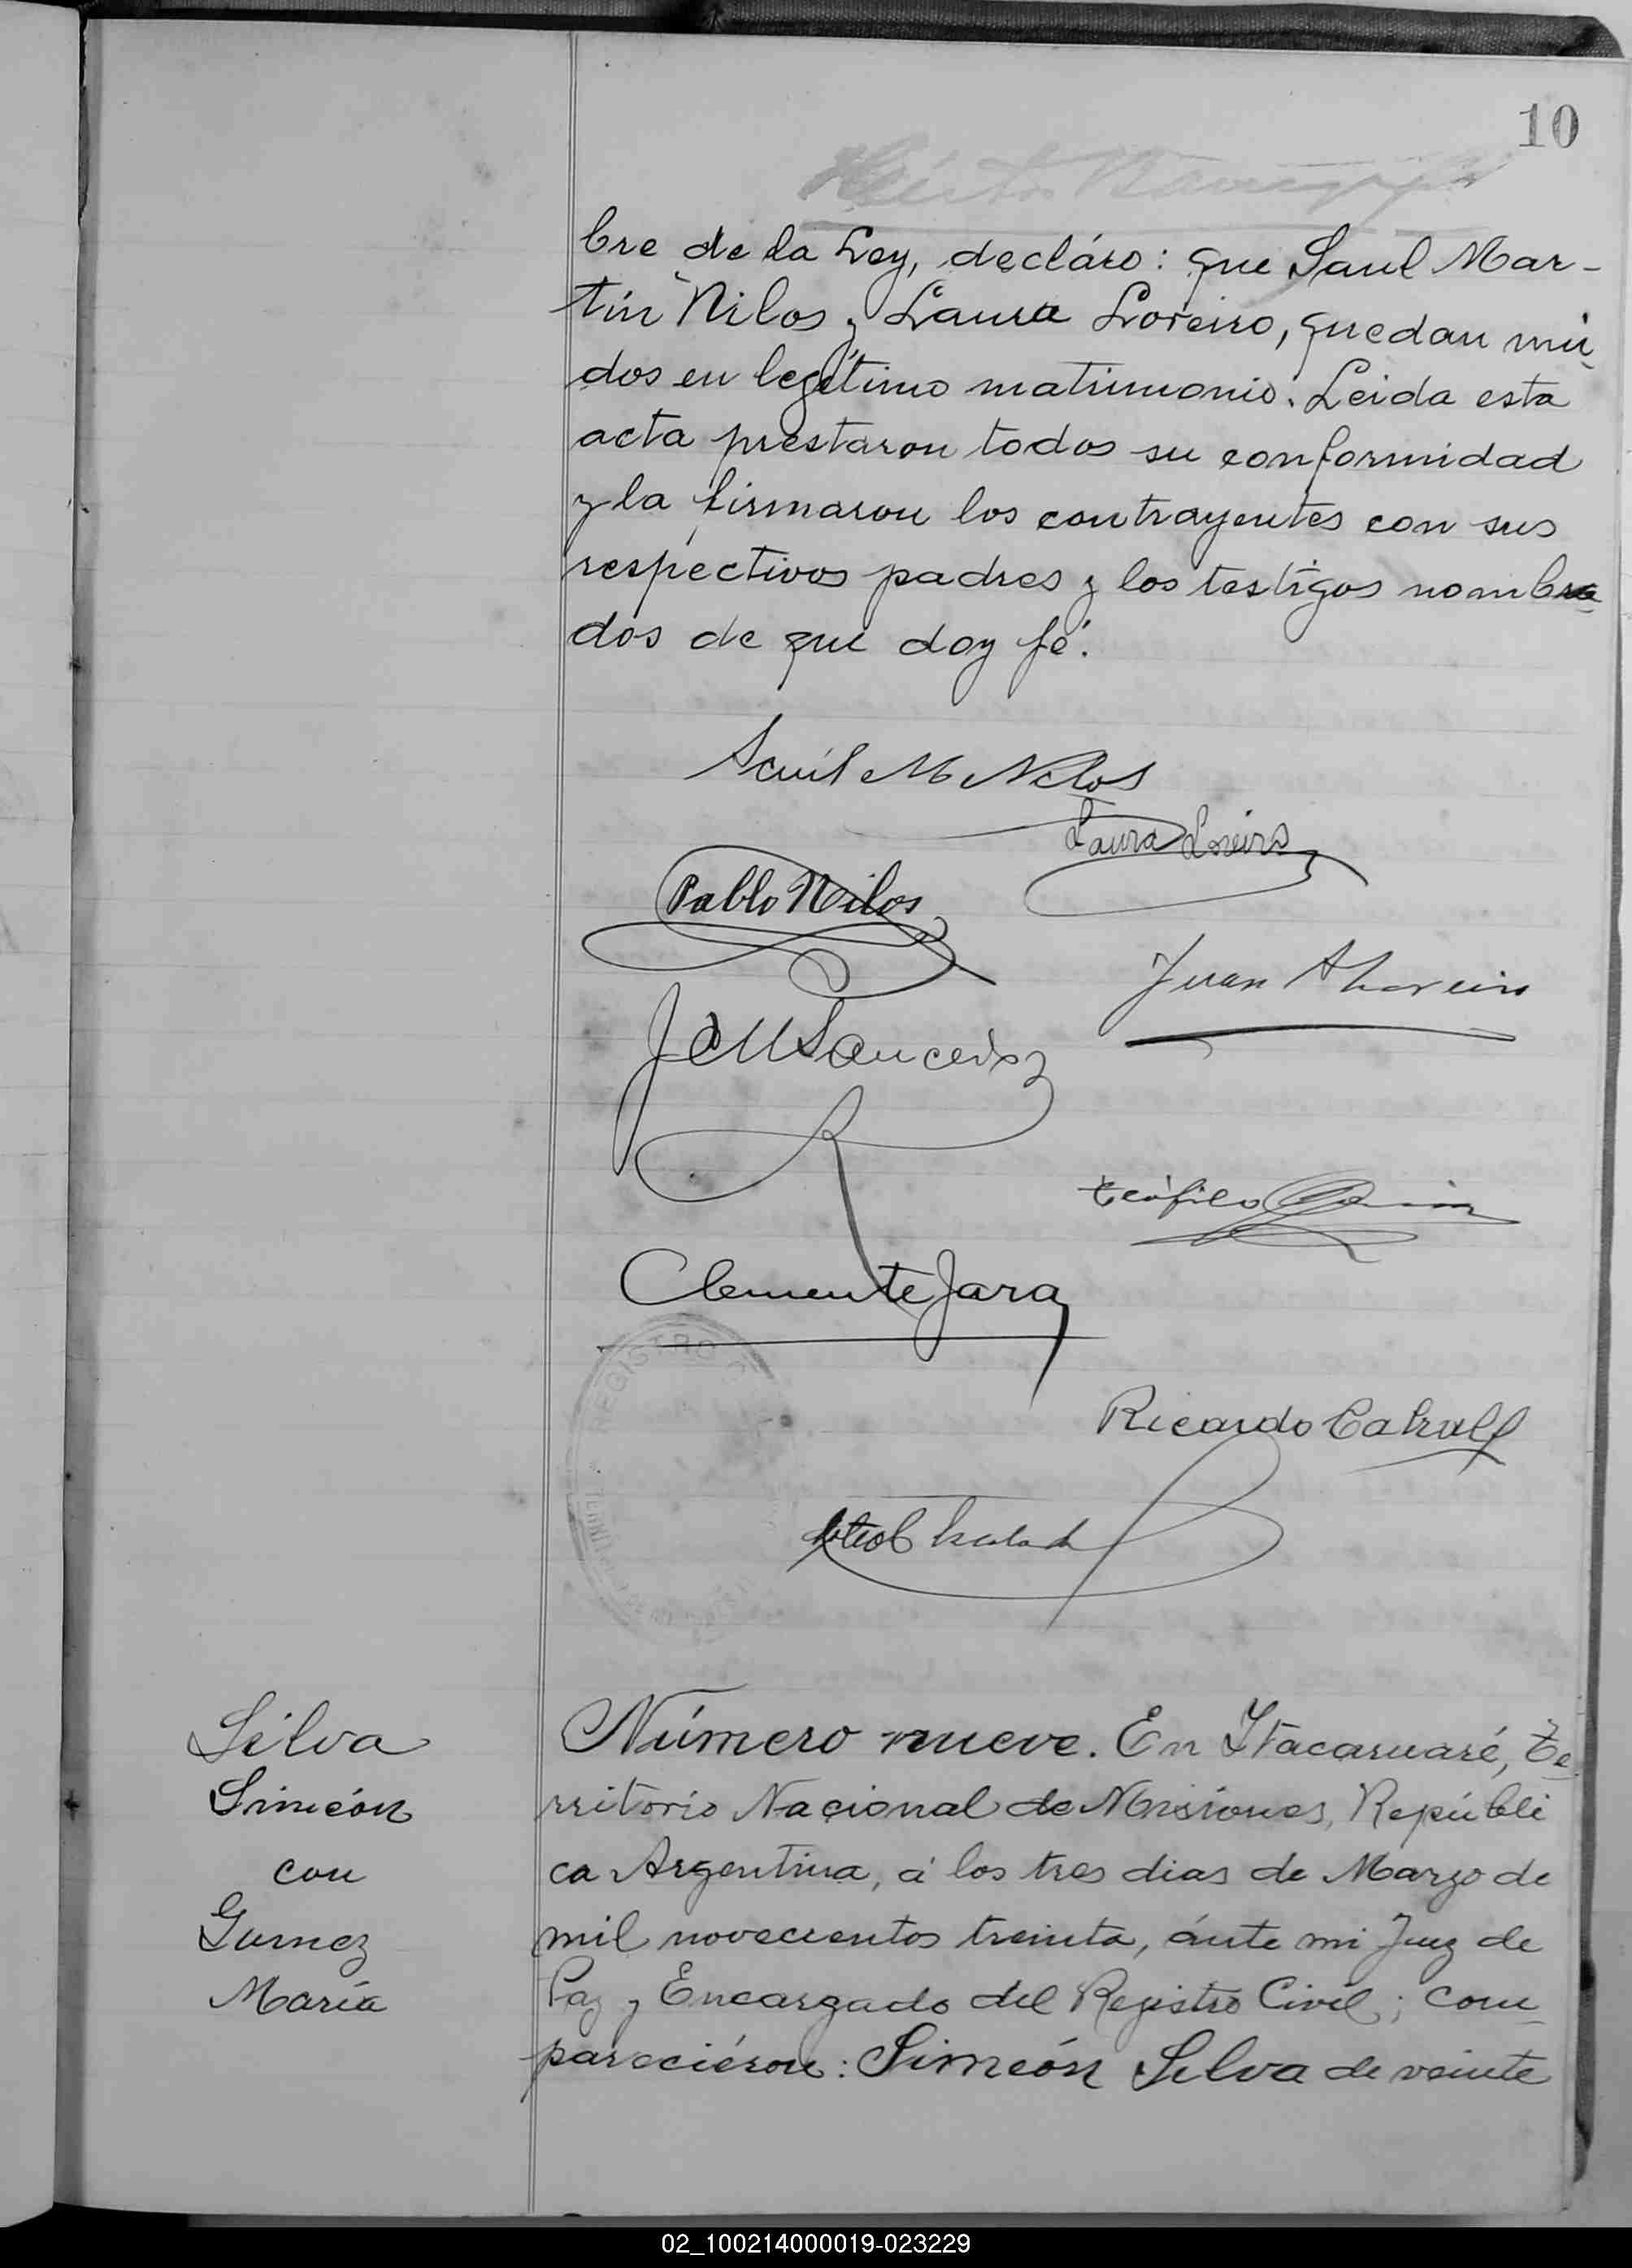 10
bre de la Ley, decláro: que Saul Mar-
tín Nilos y Laura Loreiro, quedan uni
dos en legítimo matrimonio. Leida esta
acta prestaron todos su conformidad
y la firmaron los contrayentes con sus
respectivos padres y los testigos nombra
dos de que doy fé.
Saúl M Nilos
Laura Loreiro
Pablo Nilos
Juan A Loreiro
Teófilo
Clemente Jara
REGISTRO
Ricardo
Silva
Simeón
con
Gumez
María
Número nueve. En Itacaruaré, Te
rritorio Nacional de Misiones, Repúbli
ca Argentina, á los tres dias de Marzo de
mil novecientos treinta, ánte mi Juez de
Paz y Encargado del Registro Civil; com
pareciéron: Simeón Silva de veinte
02_100214000019-023229